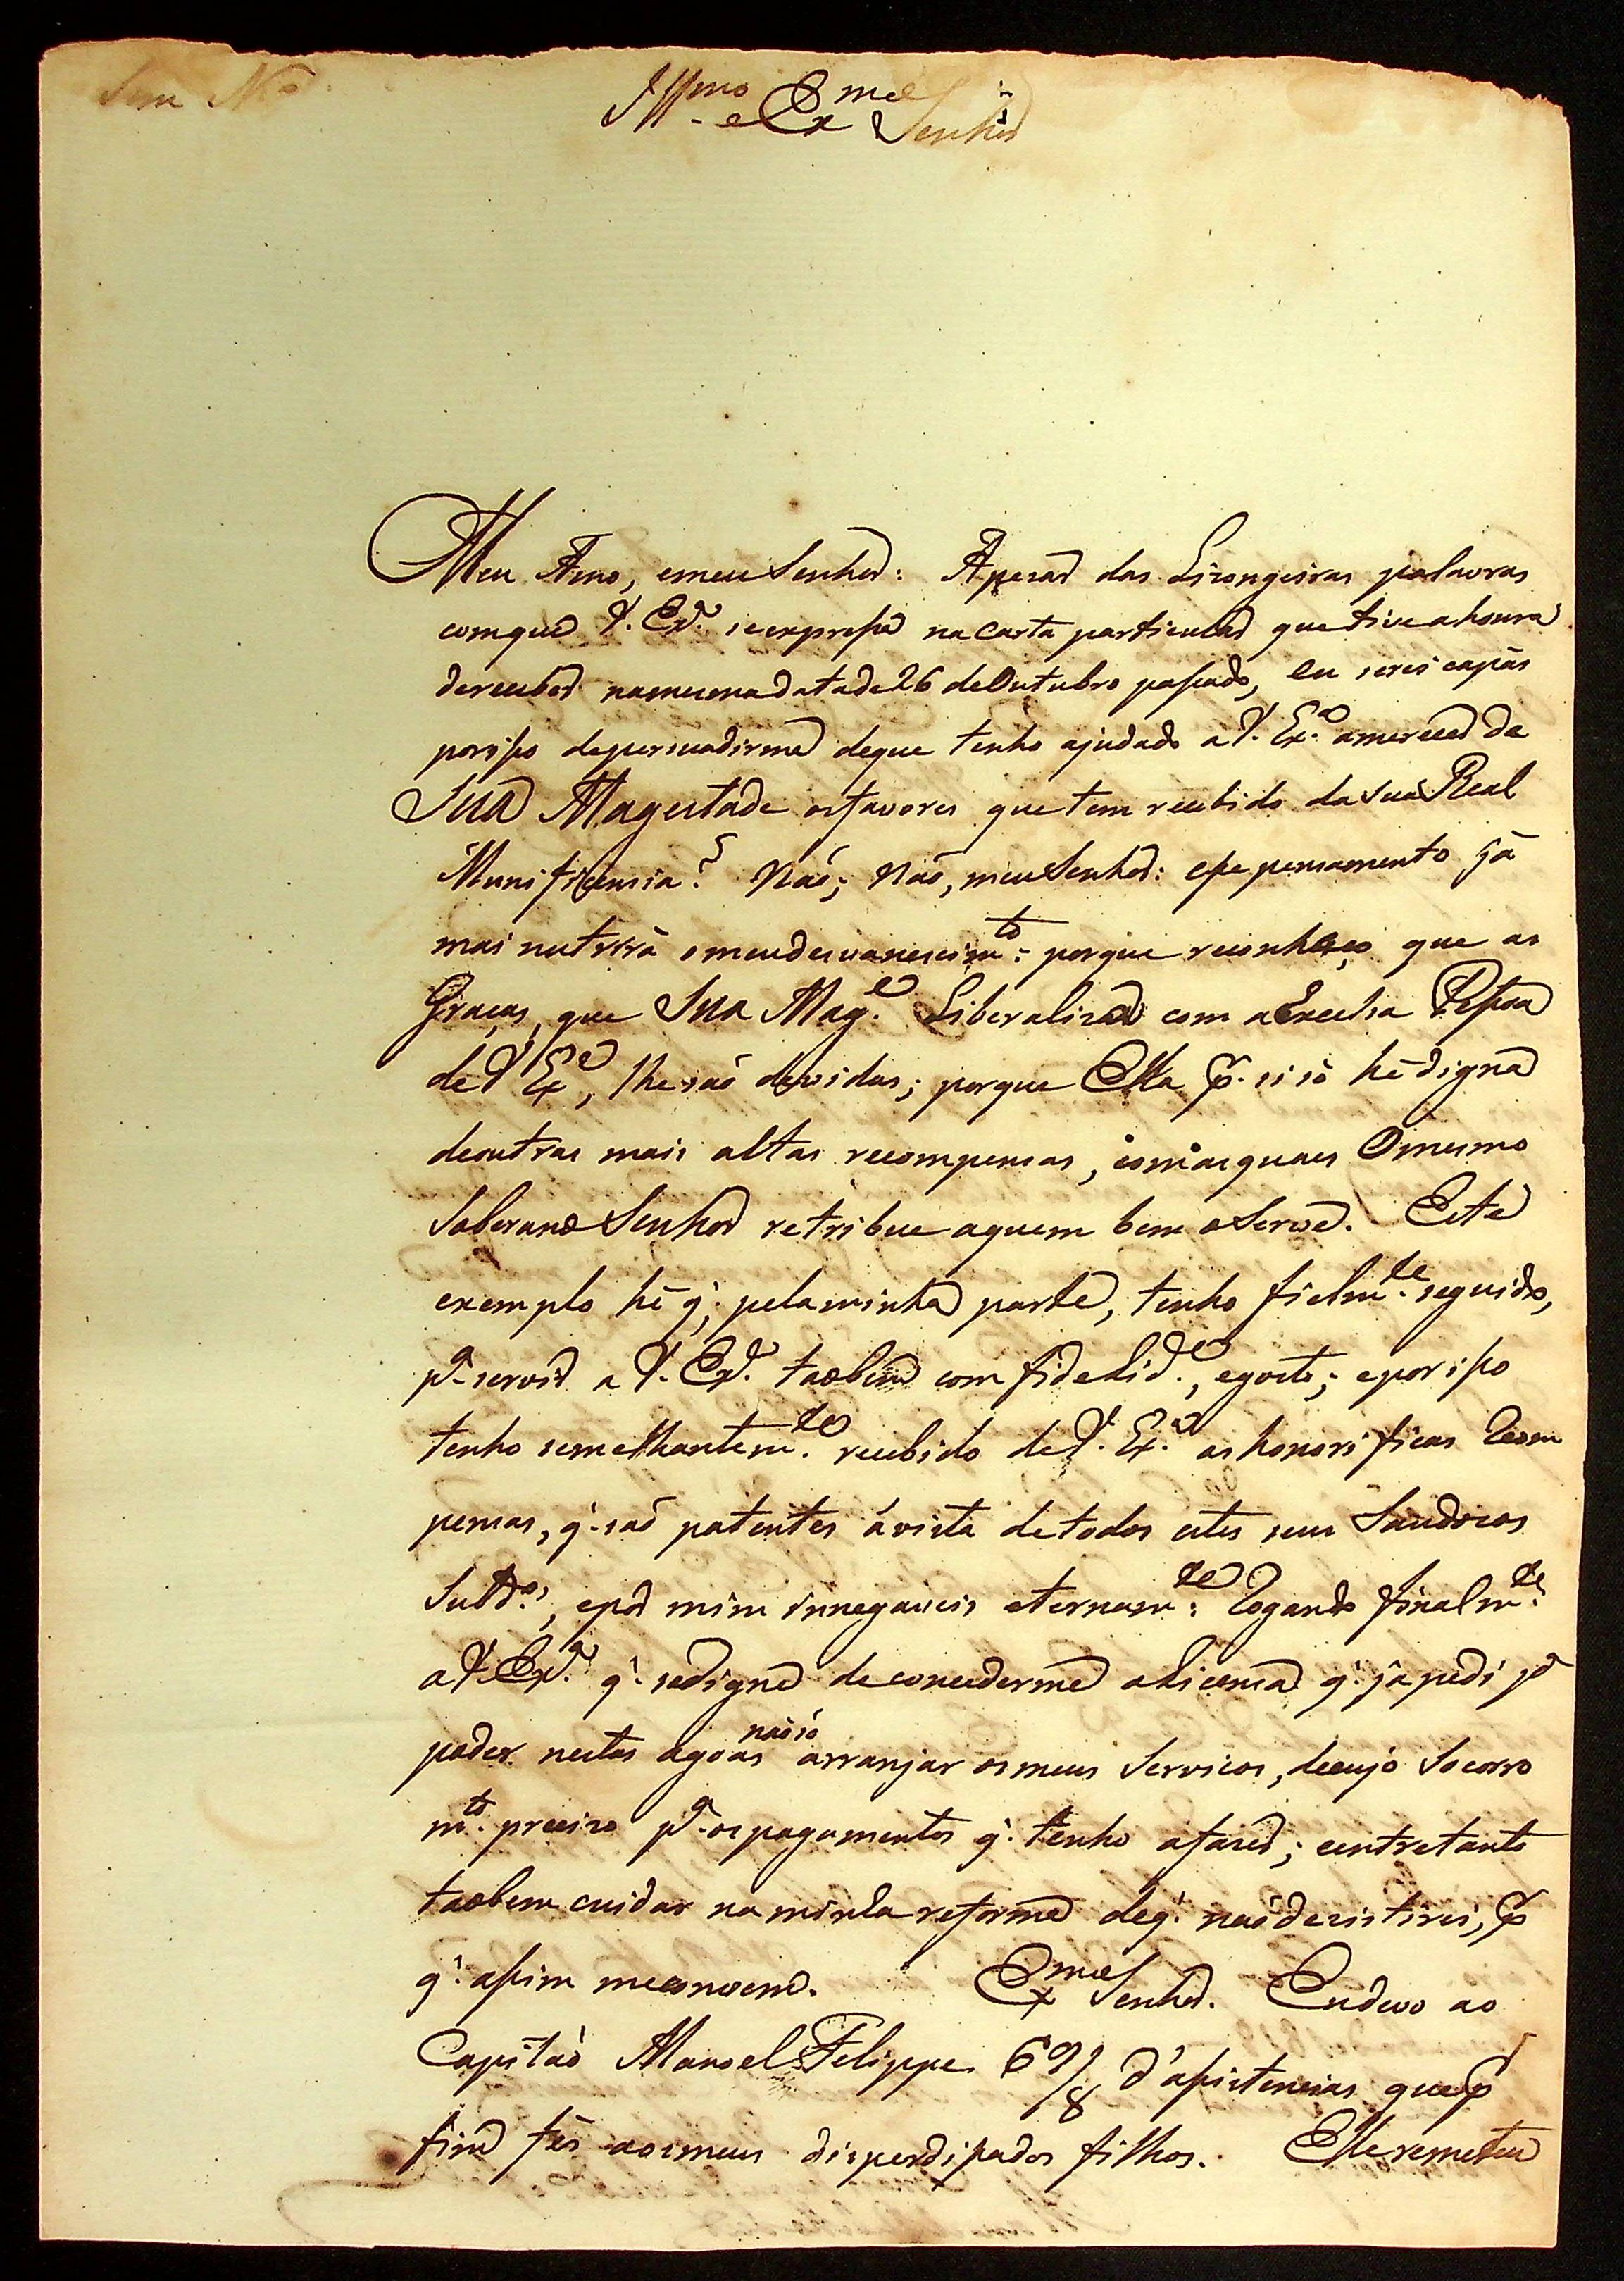 Sem N.º
Illmo e Exmo Senhor
Meu Amo, e meu Senhor: Apezar das Lisongeiras palavras
com que V. Ex.ª se expressa na Carta particular que tive a honra
de receber na mesma data de 26 de Outubro passado, eu serei capàs
por isso de persuadirme de que tenho ajudado a V. Ex.ª a merecer de
Sua Magestade os favores que tem recebido da sua Real
Munificencia? Não; Não, meu Senhor: esse pensamento já
mais nutrirà o meu desvanescim.to: porque reconheço que as
Graças, que Sua Mag.e Liberaliza com a Excelsa Pessoa
de V Ex.ª, lhe são devidas; porque Ella p.r si sò hè digna
de outras mais altas recompensas, com as quaes O mesmo
Soberano Senhor retribue a quem bem o Serve. Este
exemplo hè q', pela minha parte, tenho fielm.te seguido,
p.ª servir a V. Ex.ª taobem com fidelid.e, e gosto; e por isso
tenho semelhantem.te recebido de V. Ex.ª as honorificas Recom
pensas, q' são patentes à vista de todos estes seus Saudosos
Subd.os, e por mim innegaveis eternam.te: Rogando finalm.te
a V. Ex.ª q' se digne de concederme a Licensa q' jà pedi p.ª
poder nestas agoas não só arranjar os meus Servicos, de cujo Socorro
m.to preciso p.ª os pagamentos q' tenho a fazer; e entretanto
taobem cuidar na minha reforma de q' não dezistirei, p.r
q' assim me convem. Exmo Senhor. Eu devo ao
Capitão Manoel Felippe 69/8 d'assistencias que p.r
fim fès aos meus disperdissados filhos. Elle remeteu